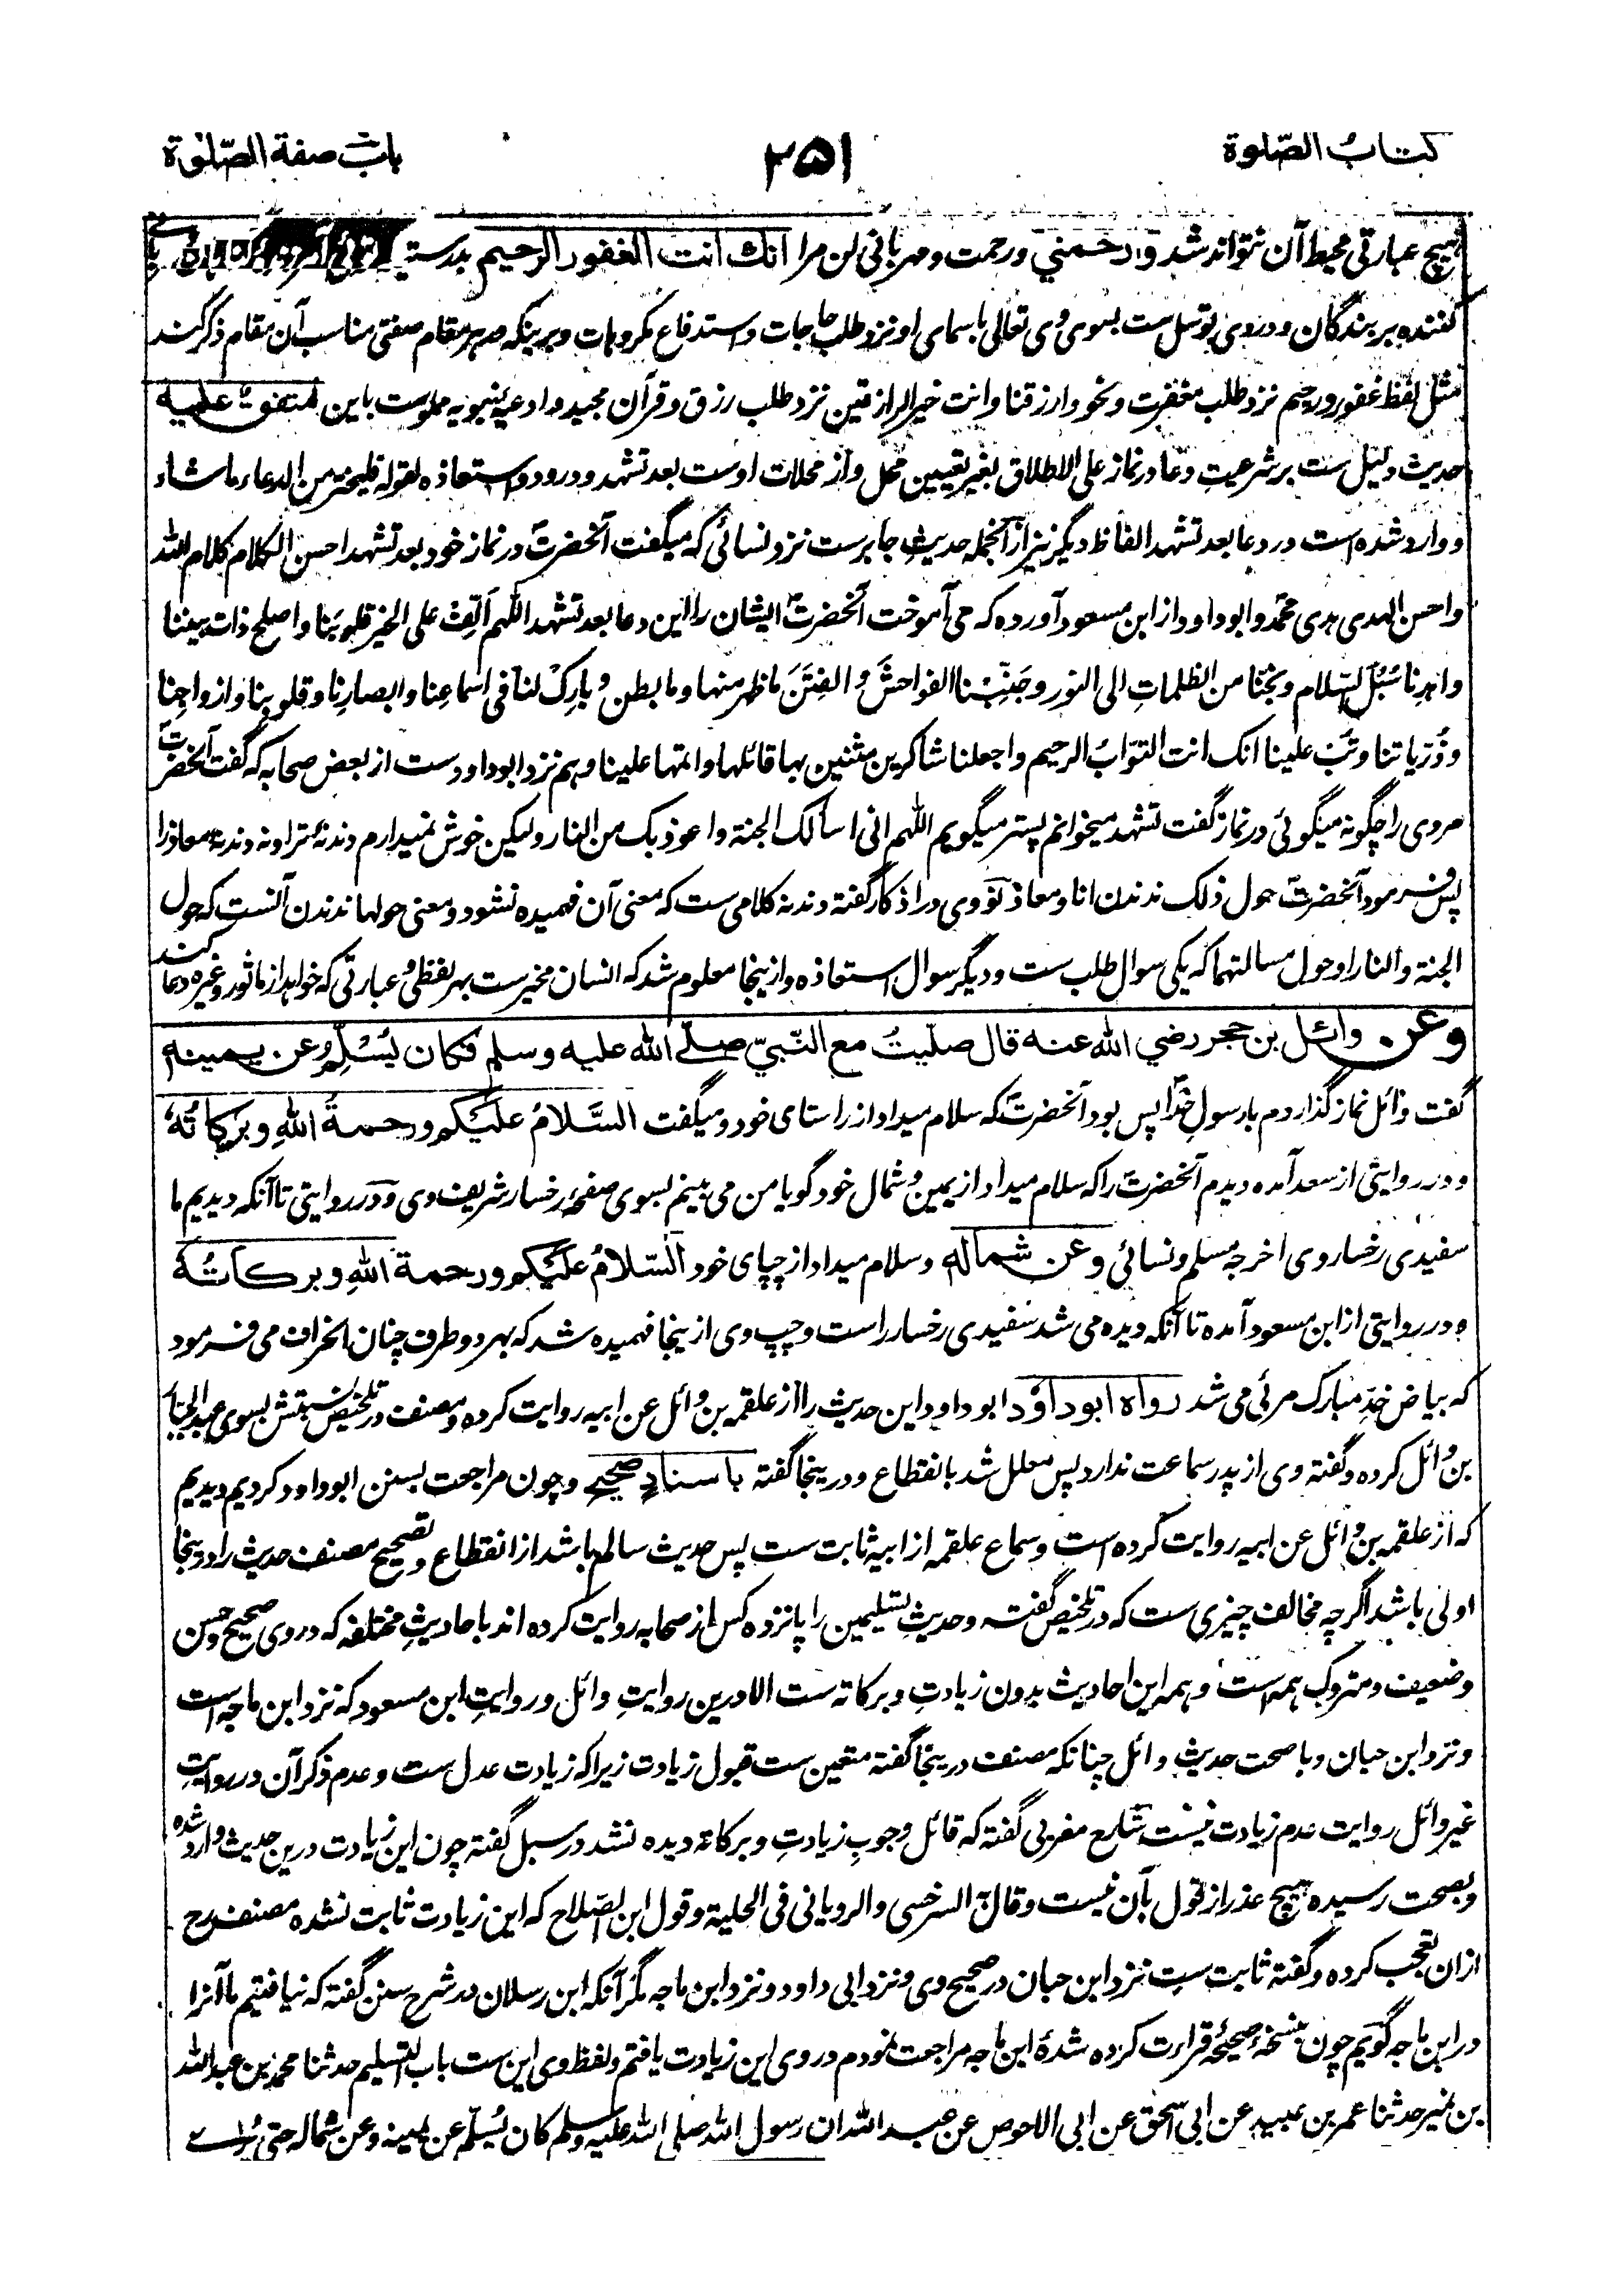 کتاب الصّلوة
۲۵۱
باب صفة الصّلوة
هیچ عبارتی محیط آن نتواند شد وارحمني ورحمت و مهربانی کن مرا انك انت الغفور الرحیم بدرستی
کننده بر بندگان و دروی توسل ست بسوی وی تعالی باسمای او نزد طلب حاجات و استدفاع مکروهات و برینکه در هر مقام صفتی مناسب آن مقام ذکر کند
مثل لفظ غفور و رحیم نزد طلب مغفرت و نحو وارزقنا وانت خیر الرازقین نزد طلب رزق و قرآن مجید و ادعیه نبویه مملوست باین متفقٌ علیه
حدیث دلیل ست بر شرعیتِ دعا در نماز علی الاطلاق بغیر تعیین محل و از محلات اوست بعد تشهد و درود و استعاذه لقوله فلیختر من الدعاء ما شاء
و وارد شده است در دعا بعد تشهد الفاظ دیگر نیز ازآنجمله حدیثِ جابرست نزد نسائی که میگفت آنحضرتؐ در نماز خود بعد تشهد احسن الکلام کلام الله
واحسن الهدی هدی محمد و ابوداود از ابن مسعود آورده که می آموخت آنحضرتؐ ایشان را این دعا بعد تشهد اللهم اَلِّف علی الخیر قلوبَنا واصلح ذات بیننا
واهدِنا سُبُلَ السّلام ونجّنا من الظلماتِ الی النورِ وجَنِّبْنا الفواحشَ والفِتَنَ ما ظهر منها وما بطن وبارِکْ لنا فی اسماعِنا وابصارِنا وقلوبِنا وازواجِنا
وذُرّیاتنا وتُب علینا انک انت التوّابُ الرحیم واجعلنا شاکرین مثنین بها قائلها واتمها علینا و هم نزد ابوداودست از بعض صحابه که گفت آنحضرتؐ
مردی را چگونه میگوئی در نماز گفت تشهد میخوانم پستر میگویم اللهم انی اسألک الجنة واعوذ بک من النار ولیکن خوش نمیدارم دندنهٔ ترا و نه دندنهٔ معاذ را
پس فرمود آنحضرتؐ حول ذلک ندندن انا و معاذ نووی در اذکار گفته دندنه کلامی ست که معنی آن فهمیده نشود و معنی حولها ندندن آنست که حول
الجنة والنار او حول مسألتهما که یکی سوال طلب ست و دیگر سوال استعاذه و ازینجا معلوم شد که انسان مخیرست بهر لفظی و عبارتی که خواهد از ماثور و غیره دعا کند
وعن وائل بن حجر رضي الله عنه قال صلّیتُ مع النّبيّ صلّے الله علیه وسلم فکان یُسْلِّمُ عن یمینه
گفت وائل نماز گذاردم با رسولِ خدا پس بود آنحضرتؐ که سلام میداد از راستای خود و میگفت السَّلامُ علیکم ورحمةُ اللهِ وبرکاتُهٗ
و در روایتی از سعد آمده دیدم آنحضرتؐ را که سلام میداد از یمین و شمال خود گویا من می بینم بسوی صفحهٔ رخسار شریف وی و در روایتی تا آنکه دیدیم ما
سفیدی رخسار وی اخرجه مسلم و نسائی وعن شماله و سلام میداد از چپای خود السّلامُ علیکم ورحمة اللهِ وبرکاتُهُ
و در روایتی از ابن مسعود آمده تا آنکه دیده می شد سفیدی رخسار راست و چپ وی ازینجا فهمیده شد که بهر دو طرف چنان انحراف می فرمود
که بیاض خدِ مبارک مرئی می شد رواه ابوداؤد ابوداود این حدیث را از علقمه بن وائل عن ابیه روایت کرده و مصنف در تلخیص نسبتش بسوی عبد الجبار
بن وائل کرده و گفته وی از پدر سماعت ندارد پس معلل شد بانقطاع و درینجا گفته باسنادٍ صحیح و چون مراجعت بسنن ابوداود کردیم دیدیم
که از علقمه بن وائل عن ابیه روایت کرده است و سماع علقمه از ابیه ثابت ست پس حدیث سالم باشد از انقطاع و تصحیح مصنف حدیث را درینجا
اولی باشد اگرچه مخالف چیزی ست که در تلخیص گفته و حدیثِ تسلیمین را پانزده کس از صحابه روایت کرده اند باحادیثِ مختلفه که دروی صحیح و حسن
و ضعیف و متروک همه است و همه این احادیث بدون زیادتِ وبرکاته ست الا درین روایتِ وائل و روایتِ ابن مسعود که نزد ابن ماجه است
و نزد ابن حبان و با صحت حدیثِ وائل چنانکه مصنف درینجا گفته متعین ست قبول زیادت زیراکه زیادت عدل ست و عدم ذکر آن در روایتِ
غیر وائل روایت عدم زیادت نیست شارح مغربی گفته که قائل وجوبِ زیادتِ وبرکاته دیده نشد در سبل گفته چون این زیادت درین حدیث وارد شده
و بصحت رسیده هیچ عذر از قول بآن نیست وقال به السرخسی والرویانی فی الحلیة و قول ابن الصلاح که این زیادت ثابت نشده مصنف رح
ازان تعجب کرده و گفته ثابت ست نزد ابن حبان در صحیح وی و نزد ابی داود و نزد ابن ماجه مگر آنکه ابن رسلان در شرح سنن گفته که نیافتیم ما آنرا
در ابن ماجه گویم چون بنسخهٔ صحیحهٔ قراءت کرده شدهٔ ابن ماجه مراجعت نمودم دروی این زیادت یافتم و لفظ وی این ست باب التسلیم حدثنا محمد بن عبدالله
بن نمیر حدثنا عمر بن عبید عن ابی اسحق عن ابی الاحوص عن عبد الله ان رسول الله صلی الله علیه وسلم کان یُسلّم عن یمینه وعن شماله حتی یُرٰے